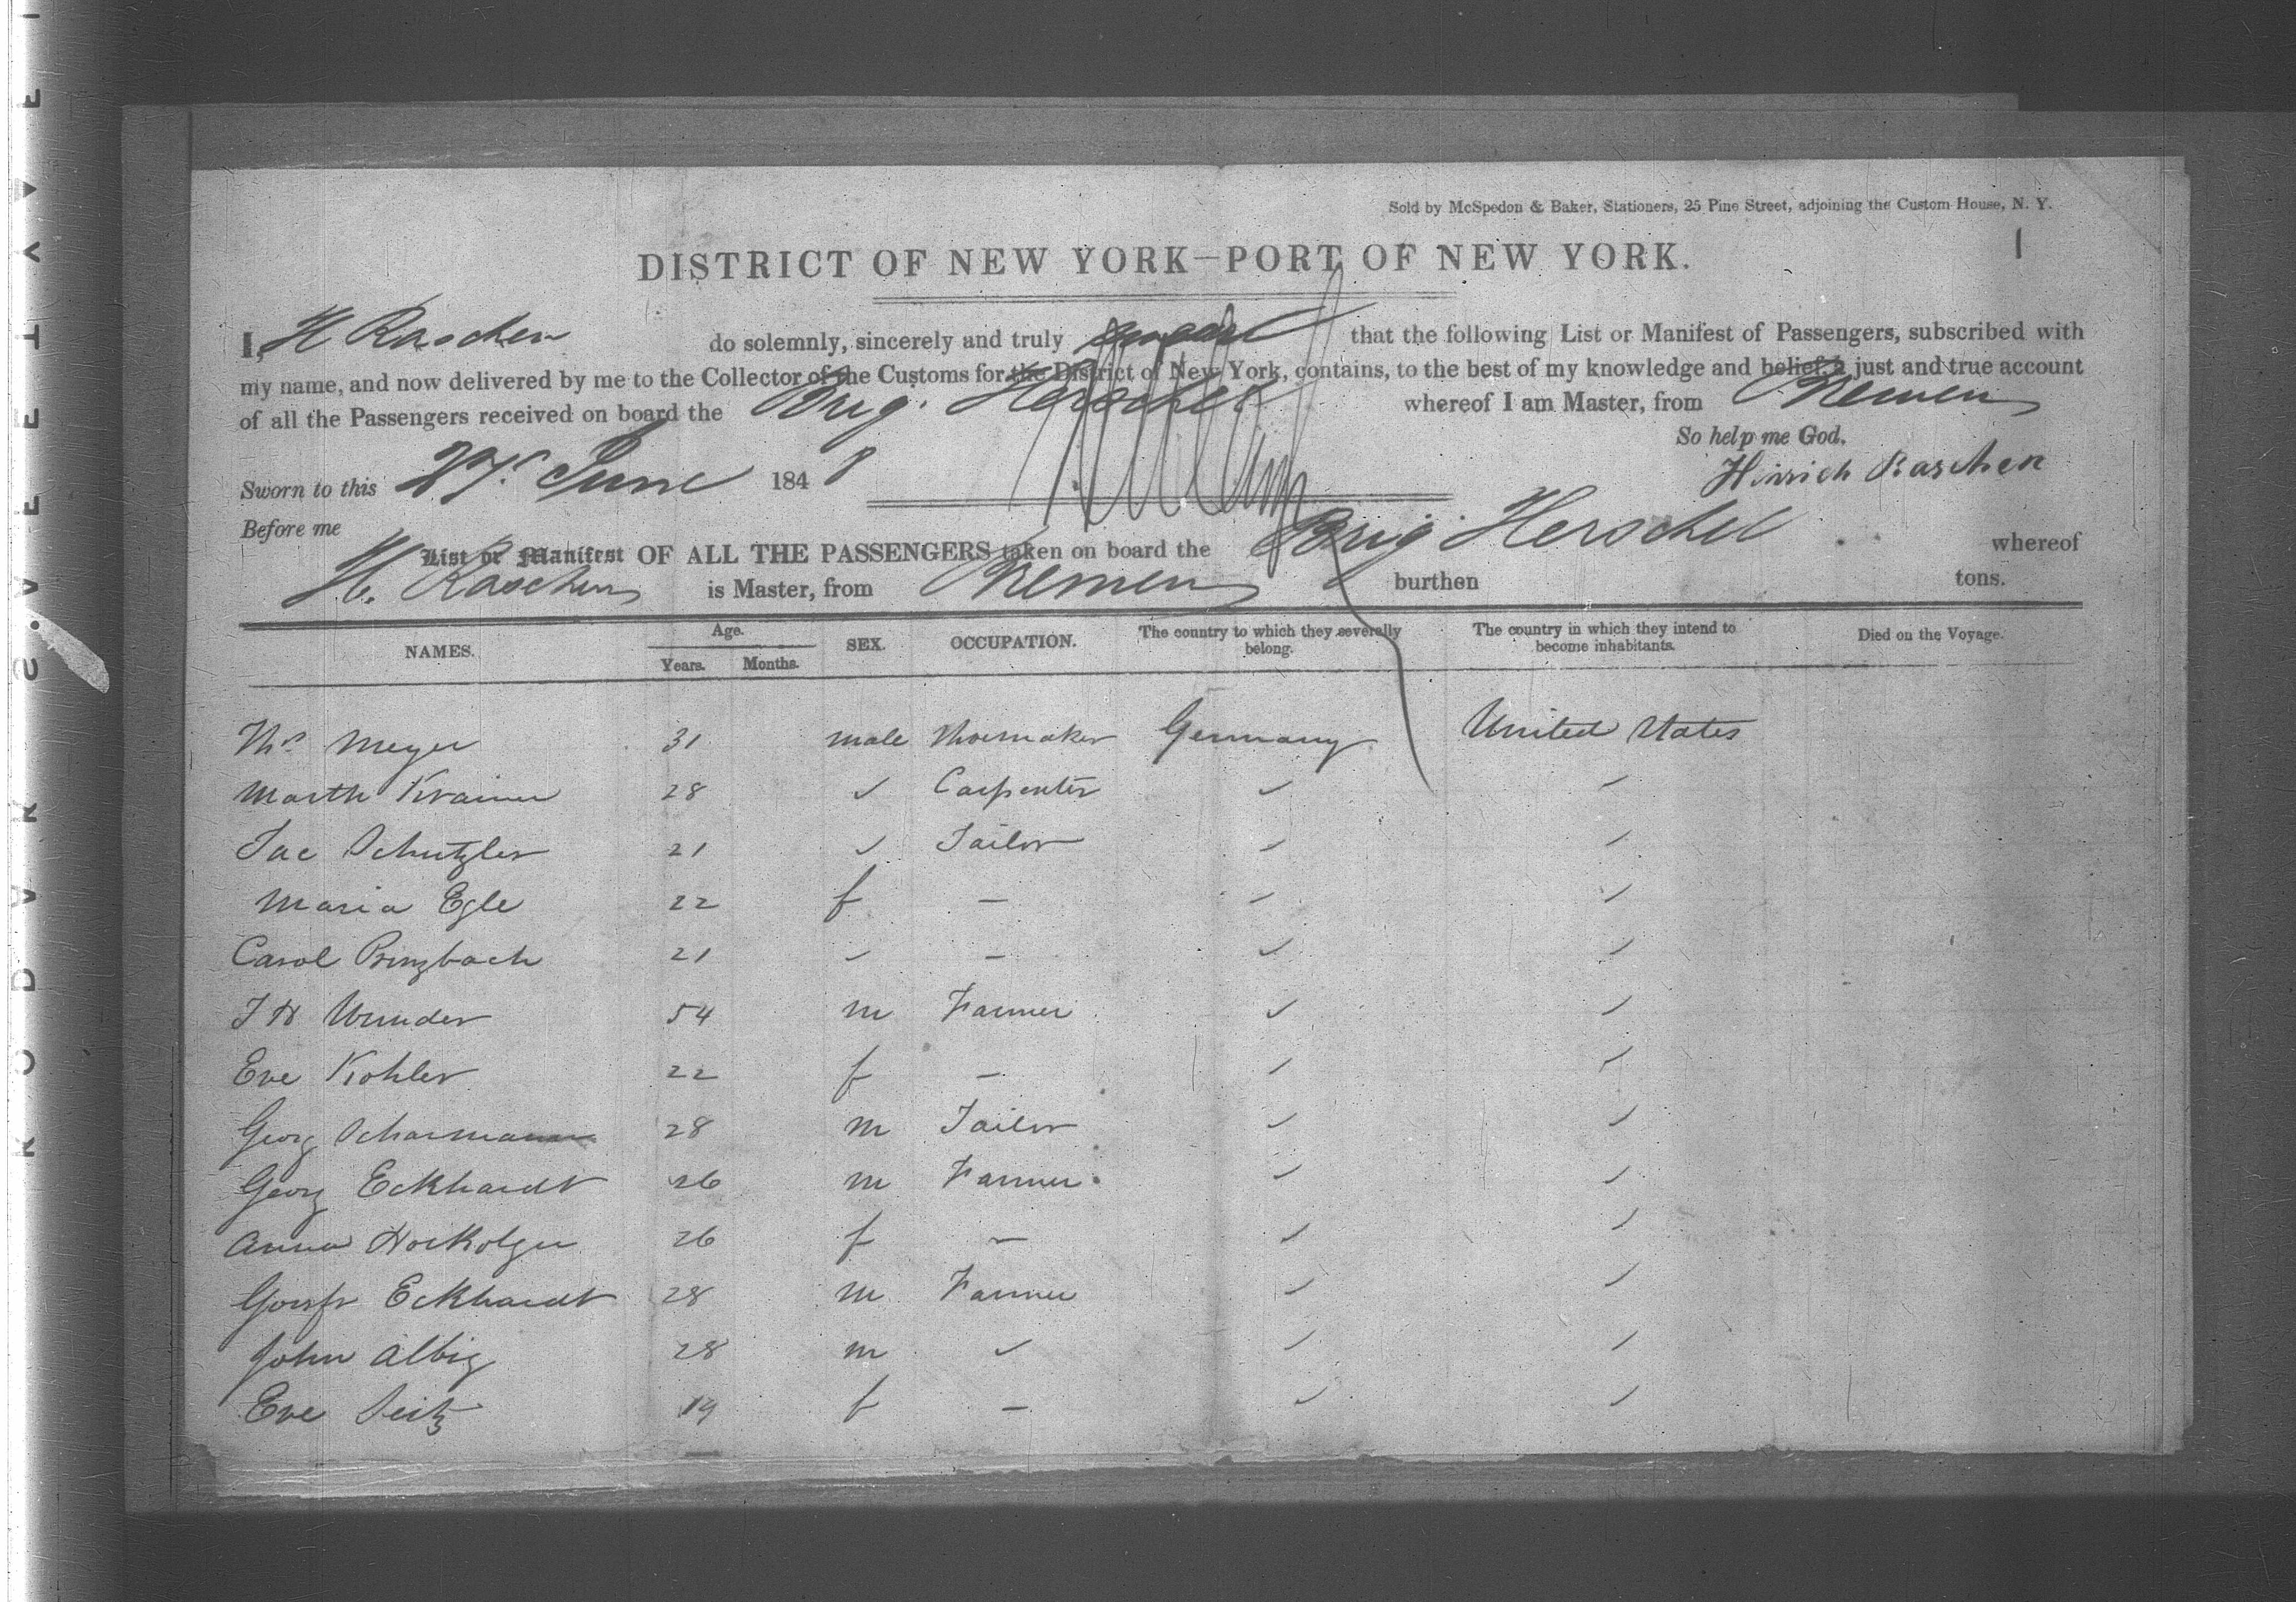 Sold by McSpedon & Baker, Stationers, 25 Pine Street, adjoining the Custom House, N. Y.
1
DISTRICT OF NEW YORK—PORT OF NEW YORK.
I, H Raschen do solemnly, sincerely and truly that the following List or Manifest of Passengers, subscribed with
my name, and now delivered by me to the Collector of the Customs for the District of New York, contains, to the best of my knowledge and belief, a just and true account
of all the Passengers received on board the Brig. Herschel whereof I am Master, from Bremen
So help me God,
Sworn to this 27. June 1848 Hinrich Raschen
Before me
List or Manifest OF ALL THE PASSENGERS taken on board the Brig Herschel whereof
H. Raschen is Master, from Bremen burthen tons.
NAMES. Age. Years. Months. SEX. OCCUPATION. The country to which they severally belong. The country in which they intend to become inhabitants. Died on the Voyage.
Meyer 31 male Shoemaker Germany United States
28 ✓ Carpenter ✓ ✓
Jac Schutzler 21 ✓ Tailor ✓ ✓
Maria Egle 22 f — ✓ ✓
Carol Prinzbach 21 ✓ — ✓ ✓
J H Wunder 54 m Farmer ✓ ✓
Eve Kohler 22 f — ✓ ✓
Georg Scharmann 28 m Tailor ✓ ✓
Georg Eckhardt 26 m Farmer ✓ ✓
Anna 26 f — ✓ ✓
Eckhardt 28 m Farmer ✓ ✓
John Albig 28 m ✓ ✓ ✓
Eve Seitz 19 f — ✓ ✓